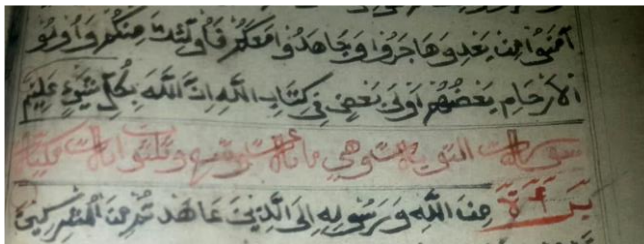 اٰمَنُوا مِنْ بَعْدُ وَهَاجَرُوا وَجَاهَدُوا مَعَكُمْ فَأُولَئِكَ مِنْكُمْ وَأُولُو
الْأَرْحَامِ بَعْضُهُمْ أَوْلَى بِبَعْضٍ فِي كِتَابِ اللَّهِ إِنَّ اللَّهَ بِكُلِّ شَيْءٍ عَلِيمٌ
سورة التوبة وهي مائة وتسع وثلثون ءاية
بَرَاءَةٌ مِنَ اللَّهِ وَرَسُولِهِ إِلَى الَّذِينَ عَاهَدْتُمْ مِنَ الْمُشْرِكِينَ